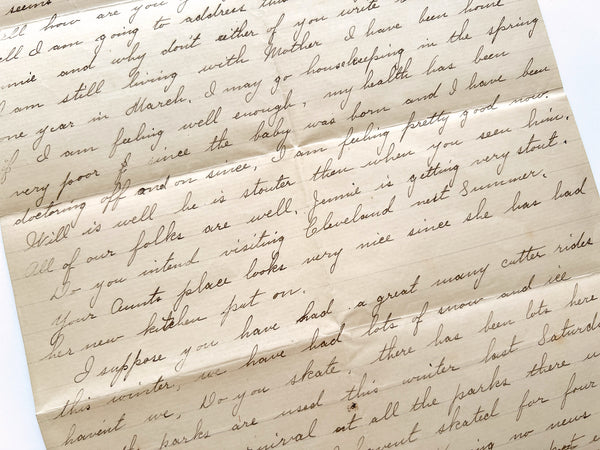 seems
well how are you
well I am going to address this
and why dont either of you write
I am still living with Mother I have been home
one year in March. I may go housekeeping in the spring
if I am feeling well enough, my health has been
very poor since the baby was born and I have been
doctoring off and on since, I am feeling pretty good now.
Will is well he is stouter then when you seen him.
All of our folks are well. Jennie is getting very stout.
Do you intend visiting Cleveland nest Summer.
Your Aunts place looks very nice since she has had
her new kitchen put on.
I suppose you have had a great many cutter rides
this winter, we have had lots of snow and ice
havent we, Do you skate, there has been lots here
parks are used this winter last Saturd
at all the parks there w
havent skated for four
no news